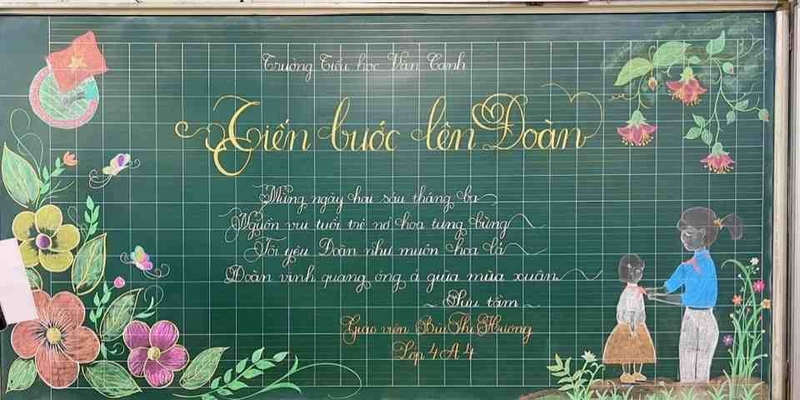 Trường Tiểu học Vân Canh
Tiến bước lên Đoàn
Mừng ngày hai sáu tháng ba
Nguồn vui tuổi trẻ nở hoa tưng bừng
Tôi yêu Đoàn như muôn hoa lá
Đoàn vinh quang óng ả giữa mùa xuân
Sưu tầm
Giáo viên Bùi Thị Hương
Lớp 4A4